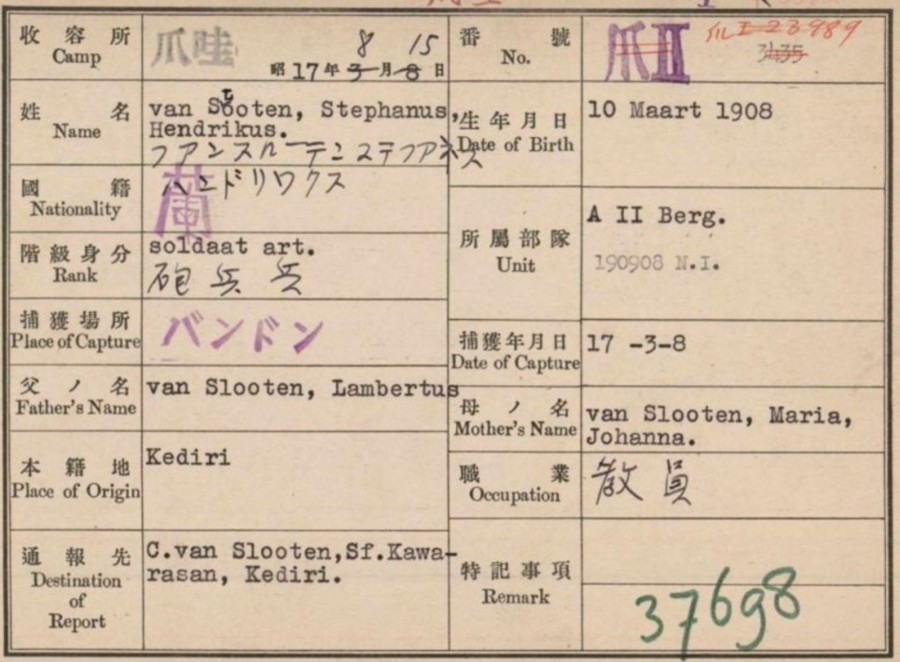 收容所
Camp
爪哇
8 15
昭17年3月8日
番號
No.
爪II
爪I-23989
3435
姓名
Name
van Slooten, Stephanus,
Hendrikus.
フアンスルーテンステフアネス
ヘンドリワクス
生年月日
Date of Birth
10 Maart 1908
國籍
Nationality
蘭
階級身分
Rank
soldaat art.
砲兵兵
所屬部隊
Unit
A II Berg.
190908 N.I.
捕獲場所
Place of Capture
バンドン
捕獲年月日
Date of Capture
17 -3-8
父ノ名
Father's Name
van Slooten, Lambertus
母ノ名
Mother's Name
van Slooten, Maria,
Johanna.
本籍地
Place of Origin
Kediri
職業
Occupation
教員
通報先
Destination
of
Report
C.van Slooten,Sf.Kawa-
rasan, Kediri.
特記事項
Remark
37698